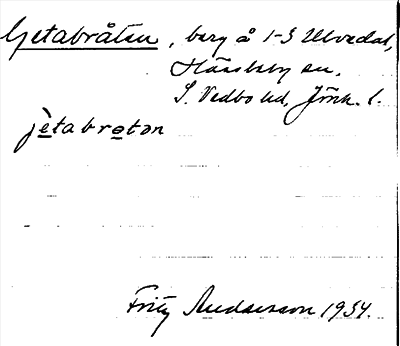 Getabråten, berg å 1-3 Ulvedal,
Hässleby sn,
S. Vedbo hd, Jönk. l.
jetabroton
Fritz Andersson 1934.